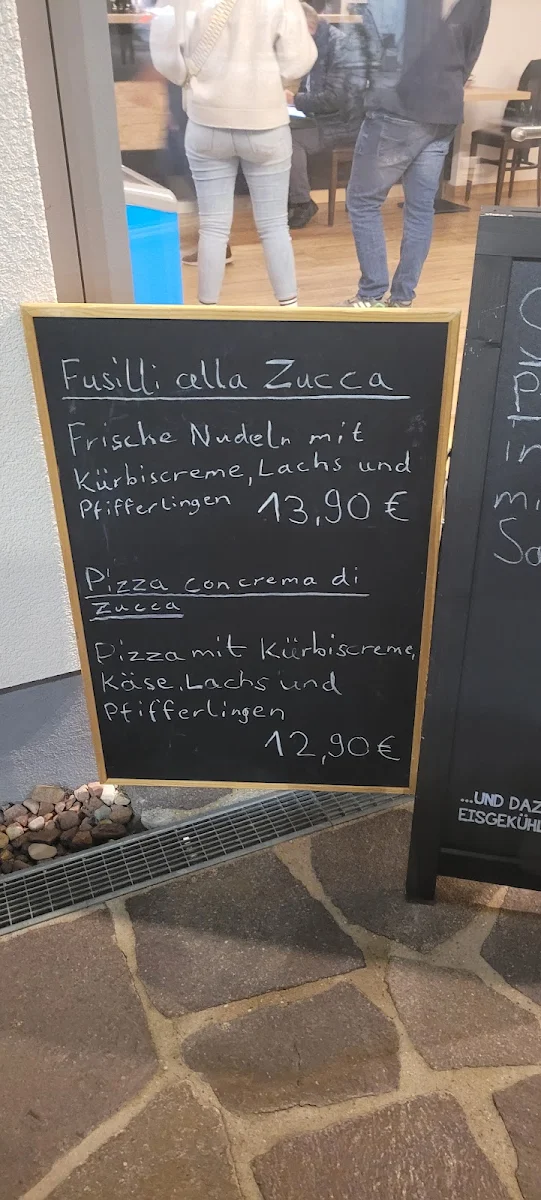 Fusilli alla Zucca
Frische Nudeln mit
Kürbiscreme, Lachs und
Pfifferlingen 13,90 €
Pizza con crema di
zucca
Pizza mit Kürbiscreme,
Käse, Lachs und
Pfifferlingen
12,90 €
...UND DAZ
EISGEKÜHL